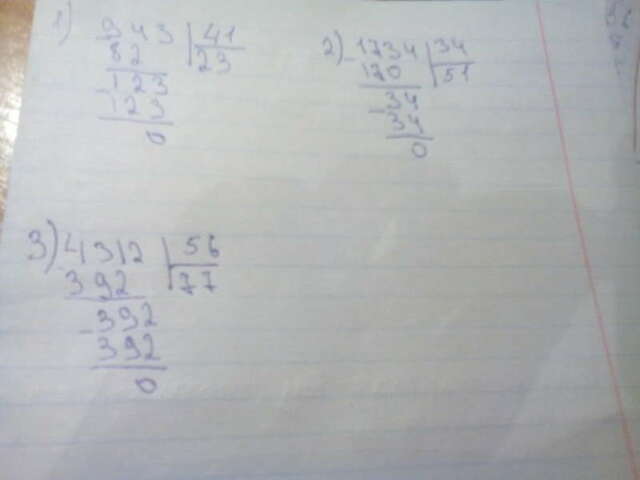 1) 943 | 41
82 | 23
-123
123
0
2) -1734 | 34
170 | 51
-34
34
0
3) 4312 | 56
392 | 77
-392
392
0